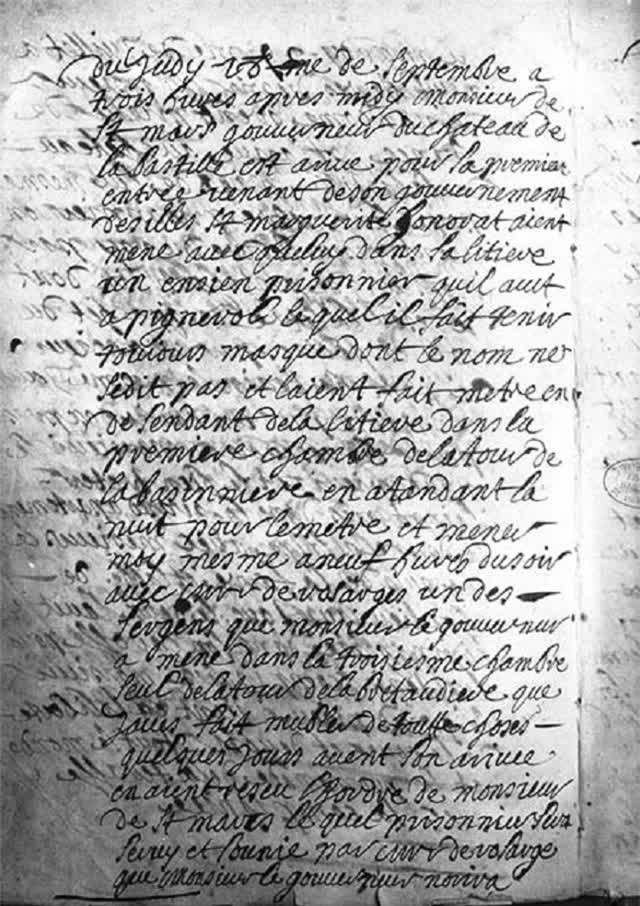 du judy 18me de septembre a
trois hures apres midy monsieur de
st mars gouuerneur du chateau de
la bastille est arive pour sa premier
entrée venant de son gouuernement
des illes st marguerite honorat aient
mené avec queluy dans sa litiere
un ensien prisonnier quil avet
a pignerol lequel il fait tenir
touiours masque dont le nom ne
sedit pas et laient fait metre en
de sendant dela litiere dans la
premiere chambre delatour de
la basinniere en atandant la
nuit pour lemetre et mener
moy mesme a neuf hures du soir
avec de rosarges un des
sergens que monsieur le gouuernur
a mené dans la troisiesme chambre
seul delatour dela bretaudiere que
javes fait mubler de toutte choses
quelques jours avent son arivee
en aient reseu lhordre de monsieur
de st mars lequel prisonnier sera
servy et sounie par de rosarge
que monsieur le gouuernur norira